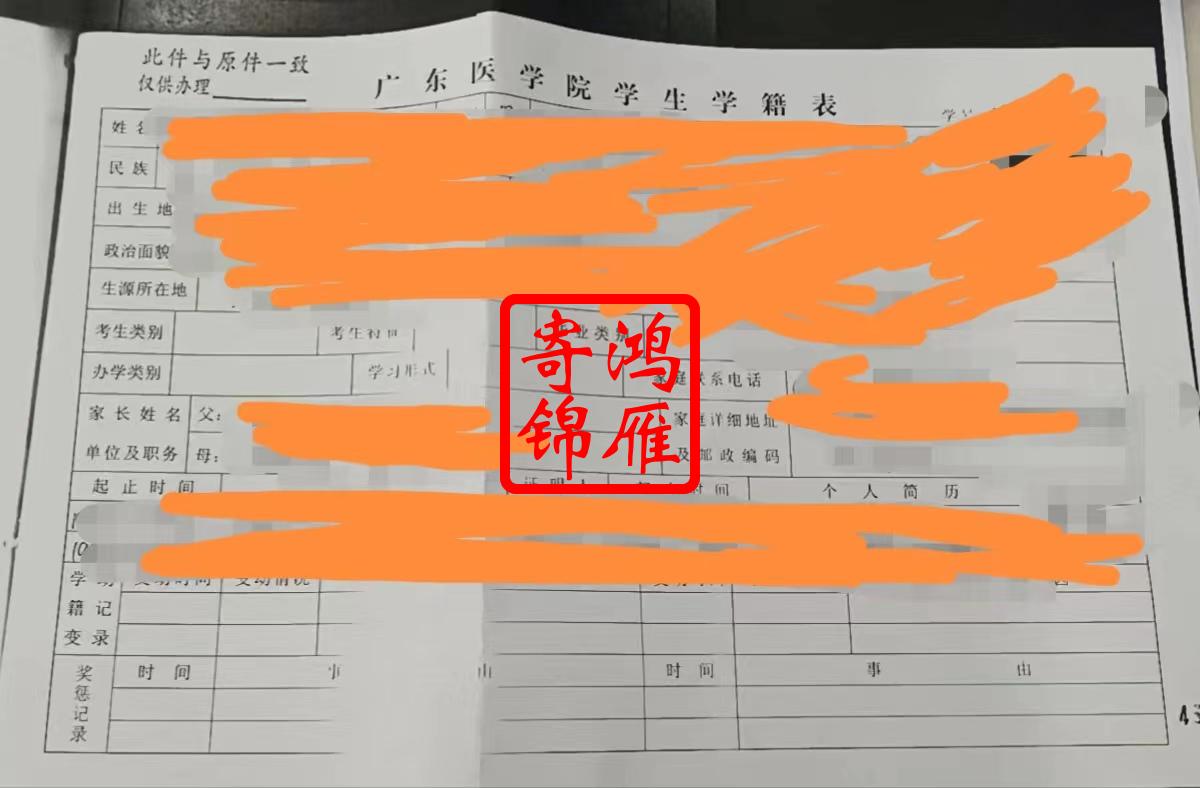 此件与原件一致
仅供办理
广东医学院学生学籍表
姓名
民族
出生地
政治面貌
生源所在地
考生类别 考生特征 毕业类别
办学类别 学习形式 家庭联系电话
家长姓名 父: 家庭详细地址
单位及职务 母: 及邮政编码
起止时间 证明人 时间 个人简历
学 动 变动时间 变动情况
籍 记
变 录
时间 事由 时间 事由
奖惩记录
寄鸿
锦雁